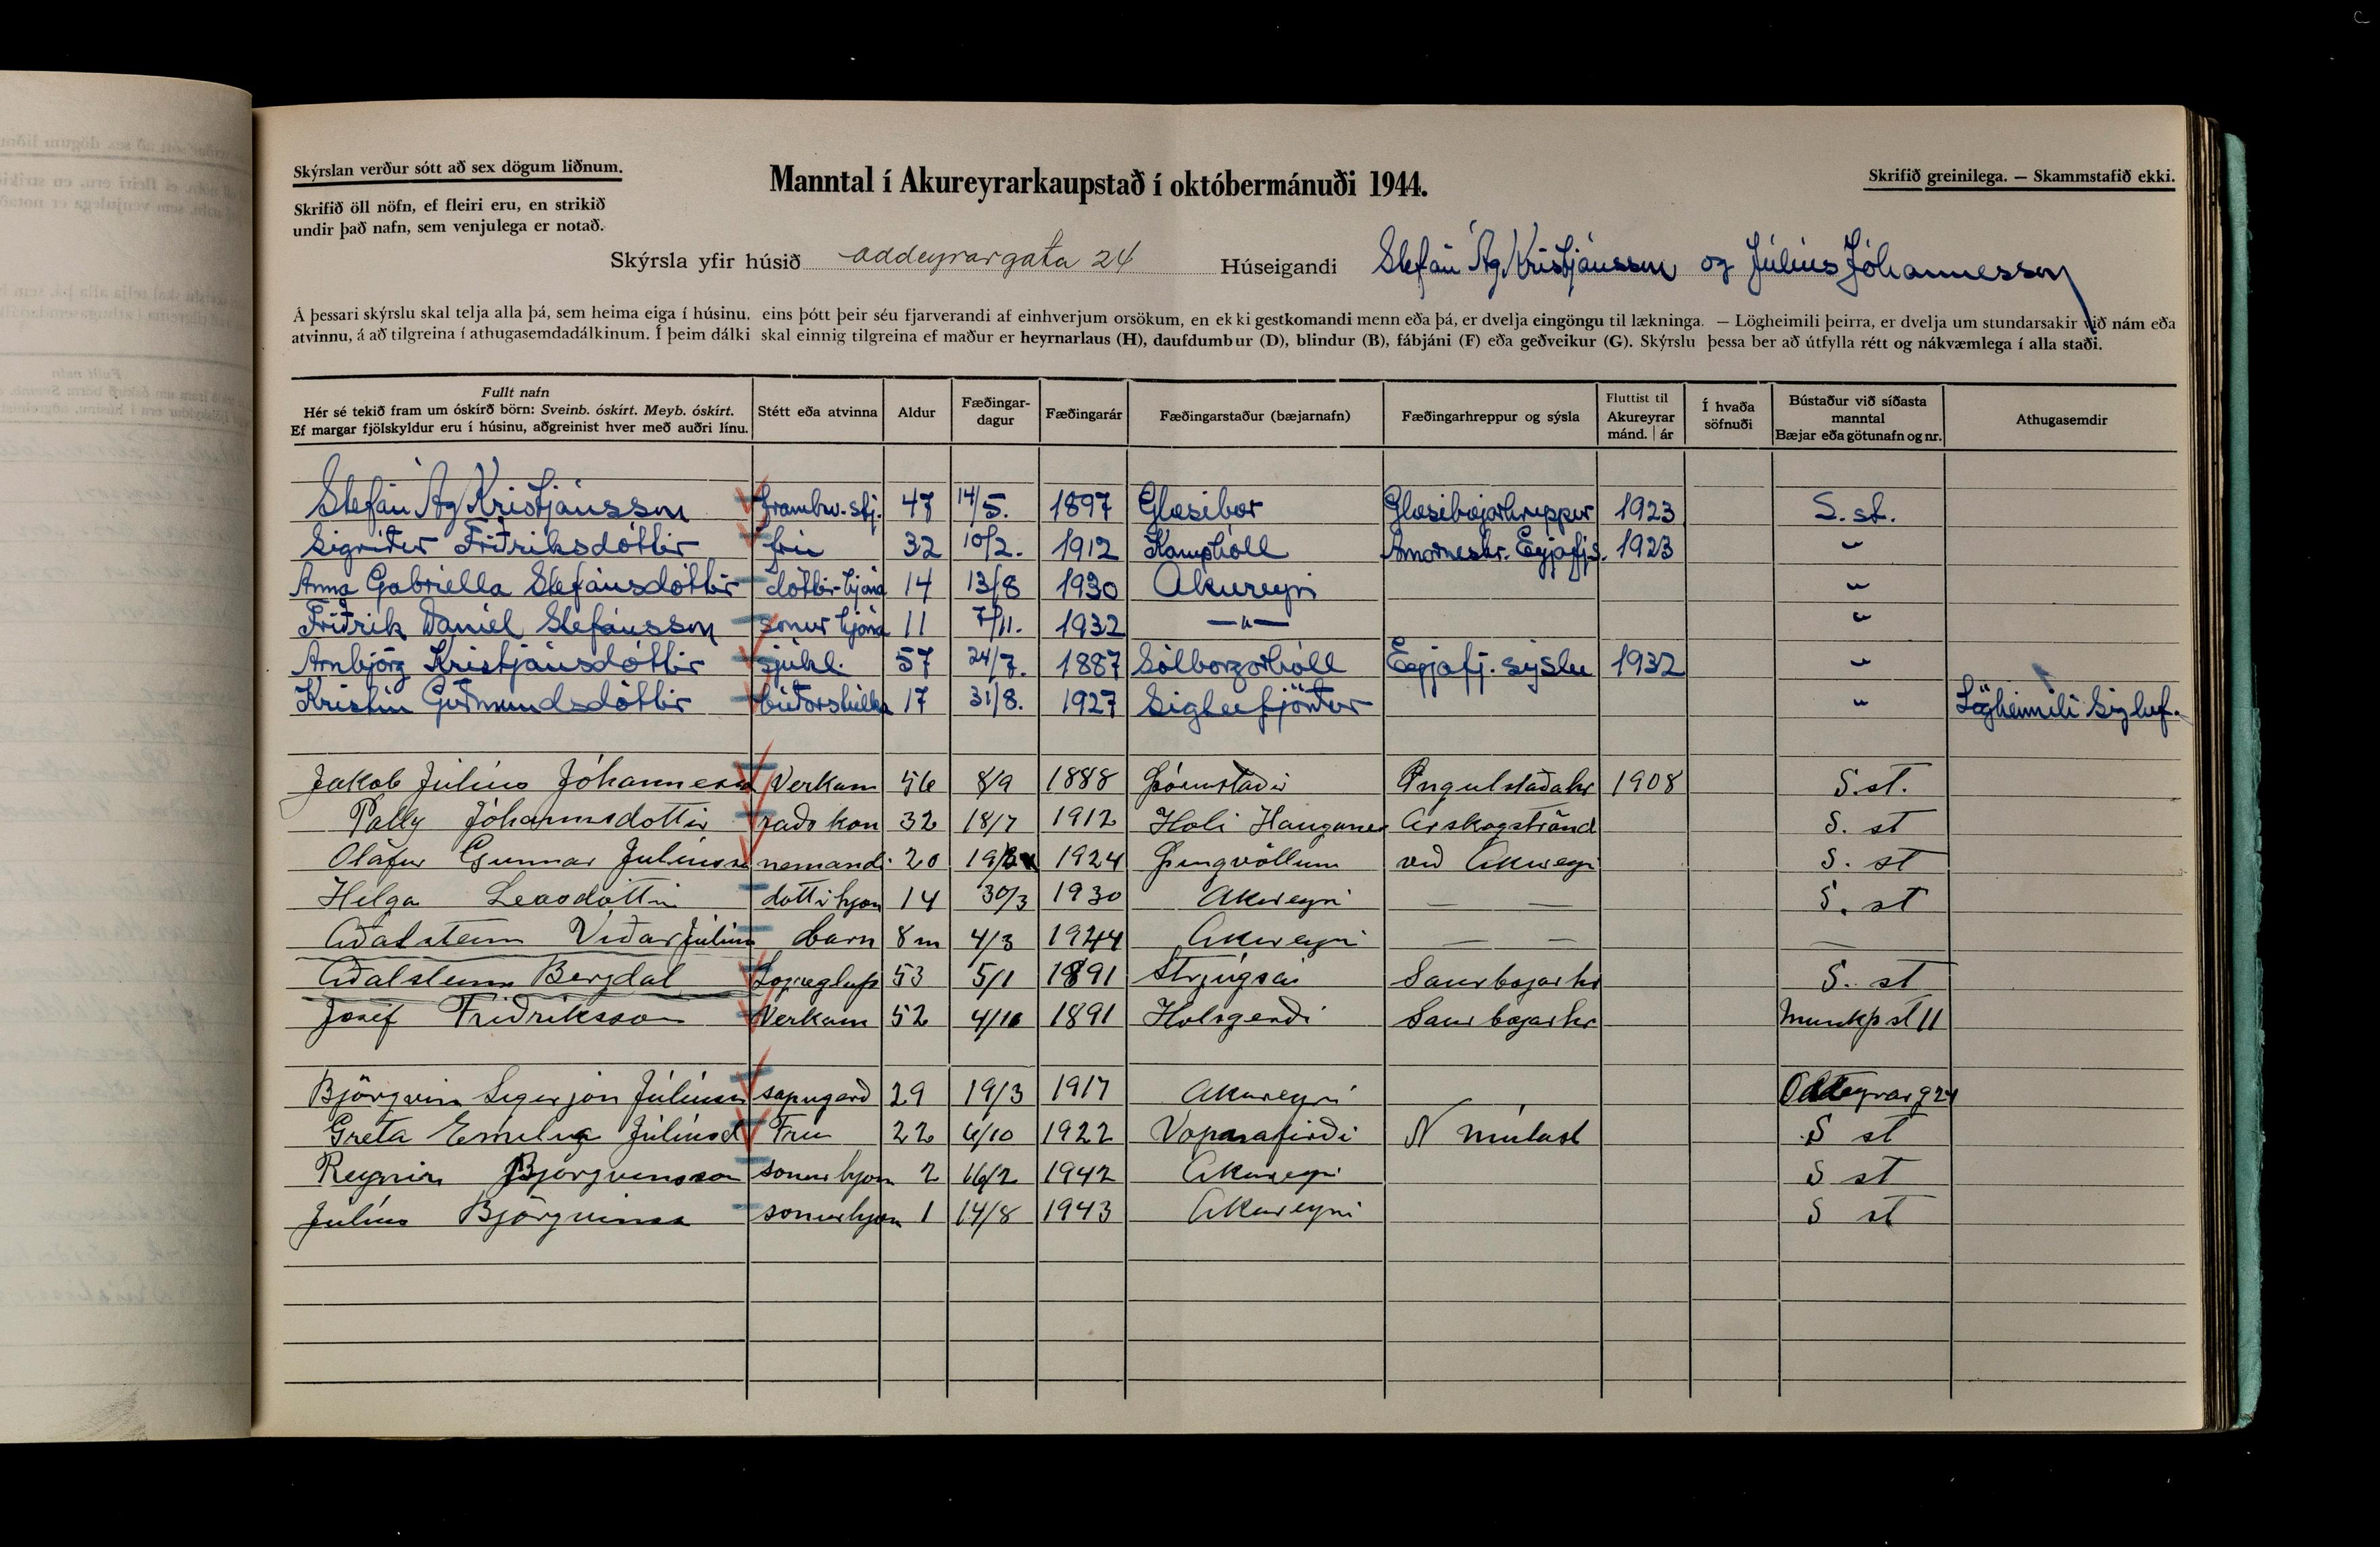 Skýrslan verður sótt að sex dögum liðnum.
Manntal í Akureyrarkaupstað í októbermánuði 1944.
Skrifið greinilega. — Skammstafið ekki.
Skrifið öll nöfn, ef fleiri eru, en strikið
undir það nafn, sem venjulega er notað.
Skýrsla yfir húsið Oddeyrargata 24 Húseigandi Stefán Ág. Kristjánsson og Júlíus Jóhannesson
Á þessari skýrslu skal telja alla þá, sem heima eiga í húsinu, eins þótt þeir séu fjarverandi af einhverjum orsökum, en ekki gestkomandi menn eða þá, er dvelja eingöngu til lækninga. — Lögheimili þeirra, er dvelja um stundarsakir við nám eða
atvinnu, á að tilgreina í athugasemdadálkinum. Í þeim dálki skal einnig tilgreina ef maður er heyrnarlaus (H), daufdumbur (D), blindur (B), fábjáni (F) eða geðveikur (G). Skýrslu þessa ber að útfylla rétt og nákvæmlega í alla staði.
Fullt nafn
Hér sé tekið fram um óskírð börn: Sveinb. óskírt. Meyb. óskírt.
Ef margar fjölskyldur eru í húsinu, aðgreinist hver með auðri línu.
Stétt eða atvinna
Aldur
Fæðingar-
dagur
Fæðingarár
Fæðingarstaður (bæjarnafn)
Fæðingarhreppur og sýsla
Fluttist til
Akureyrar
mánd. | ár
Í hvaða
söfnuði
Bústaður við síðasta
manntal
Bæjar eða götunafn og nr.
Athugasemdir
Stefán Ág Kristjánsson framkv.stj. 47 14/5. 1897 Glæsibær Glæsibæjarhreppur 1923 S. st.
Sigríður Friðriksdóttir frú 32 10/2. 1912 Kamphóll Arnarneshr. Eyjafjs. 1923 "
Anna Gabriella Stefánsdóttir dóttir hjóna 14 13/8 1930 Akureyri "
Friðrik Daníel Stefánsson sonur hjóna 11 7/11. 1932 —"— "
Arnbjörg Kristjánsdóttir sjúkl. 57 24/7. 1887 Sólborgarhóll Eyjafj. sýslu 1932 "
Kristín Guðmundsdóttir búðarstúlka 17 31/8. 1927 Siglufjörður " Lögheimili Sigluf.
Jakob Júlíus Jóhannesson Verkam 56 8/9 1888 Öngulstaðahr 1908 S. st.
Pally Jóhannsdottir raðskon 32 18/7 1912 Holi Hauganes Arskogströnd S. st
Olafur Gunnar Júlíusson nemandi 20 1924 Þingvöllum við Akureyri S. st
Helga Leosdóttir dottir hjon 14 30/3 1930 Akureyri — — S. st
Aðalsteinn Viðar Júlíuss barn 8 m 4/3 1944 Akureyri — — —
Aðalsteinn Bergdal 53 5/1 1891 Strjúgsá Saurbæjarhr S. st
Josef Friðriksson Verkam 52 1891 Holsgerði Saurbæjarhr Munkþ st 11
Björgvin Sigurjón Júlíusson sapugerð 29 19/3 1917 Akureyri Oddeyrarg 24
Greta Emilia Júlíusd Frú 22 6/10 1922 Vopnafirði N múlasl S st
Reynir Björgvinsson sonur hjon 2 16/2 1942 Akureyri S st
Júlíus Björgvinss sonur hjon 1 14/8 1943 Akureyri S st